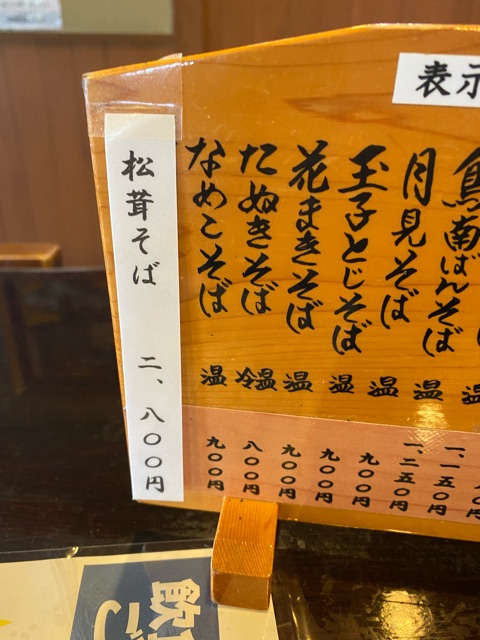 表示
鳥南ばんそば 温 一、二五〇円
月見そば 温 九〇〇円
玉子とじそば 温 九〇〇円
花まきそば 温 九〇〇円
たぬきそば 冷温 八〇〇円
なめこそば 温 九〇〇円
松茸そば 二、八〇〇円
飲